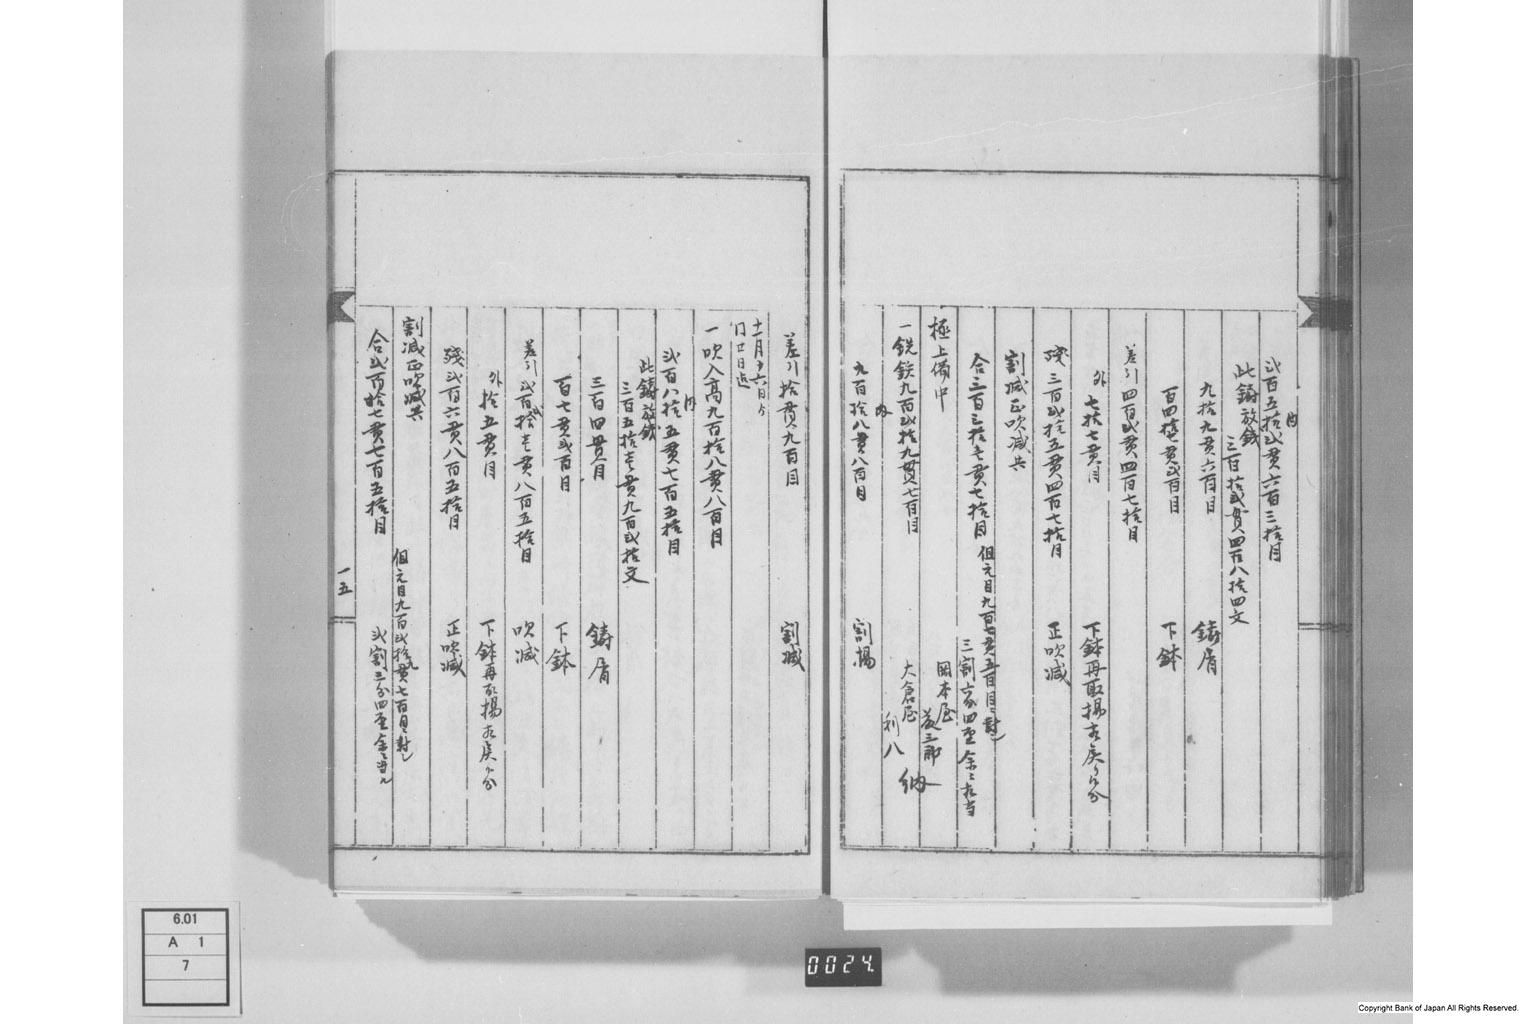 内
弐百五拾弐貫六百三拾目
此鋳放銭
三百拾弐貫四百八拾四文
九拾九貫六百目 鋳屑
百四拾七貫弐百目 下鉢
差引四百弐貫四百七拾目
外七拾七貫目 下鉢再取揚有之候ヶ分
残三百弐拾五貫四百七拾目 正吹減
割減正吹減共
合三百三拾壱貫七拾目
但元目九百七貫五百目ニ対し
三割六分四重余ニ相当
極上備中
岡本屋 益三郎
一銑鉄九百弐拾九貫七百目
大倉屋 利八
納
内
九百拾八貫八百目 割揚
差引拾貫九百目 割減
十一月十六日ゟ
同廿日迄
一吹入高九百拾八貫八百目
内
弐百八拾五貫七百五拾目
此鋳放銭
三百五拾壱貫九百弐拾文
三百四貫目 鋳屑
百七貫弐百目 下鉢
差引弐百弐拾壱貫八百五拾目 吹減
外拾五貫目 下鉢再取揚有之候ヶ分
残弐百六貫八百五拾目 正吹減
割減正吹減共
但元目九百弐拾九貫七百目ニ対し
合弐百拾七貫七百五拾目
弐割三分四重余ニ当ル
一五
6.01
A 1
7
0024.
Copyright Bank of Japan All Rights Reserved.